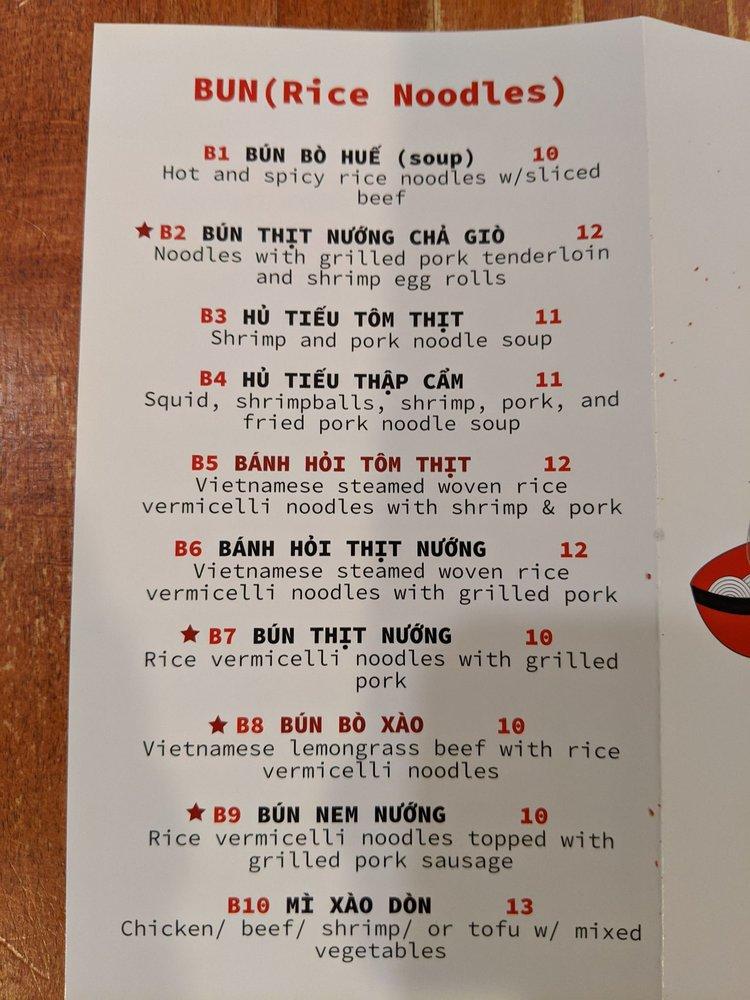 BUN(Rice Noodles)
B1 BÚN BÒ HUẾ (soup) 10
Hot and spicy rice noodles w/sliced
beef
★ B2 BÚN THỊT NƯỚNG CHẢ GIÒ 12
Noodles with grilled pork tenderloin
and shrimp egg rolls
B3 HỦ TIẾU TÔM THỊT 11
Shrimp and pork noodle soup
B4 HỦ TIẾU THẬP CẨM 11
Squid, shrimpballs, shrimp, pork, and
fried pork noodle soup
B5 BÁNH HỎI TÔM THỊT 12
Vietnamese steamed woven rice
vermicelli noodles with shrimp & pork
B6 BÁNH HỎI THỊT NƯỚNG 12
Vietnamese steamed woven rice
vermicelli noodles with grilled pork
★ B7 BÚN THỊT NƯỚNG 10
Rice vermicelli noodles with grilled
pork
★ B8 BÚN BÒ XÀO 10
Vietnamese lemongrass beef with rice
vermicelli noodles
★ B9 BÚN NEM NƯỚNG 10
Rice vermicelli noodles topped with
grilled pork sausage
B10 MÌ XÀO DÒN 13
Chicken/ beef/ shrimp/ or tofu w/ mixed
vegetables